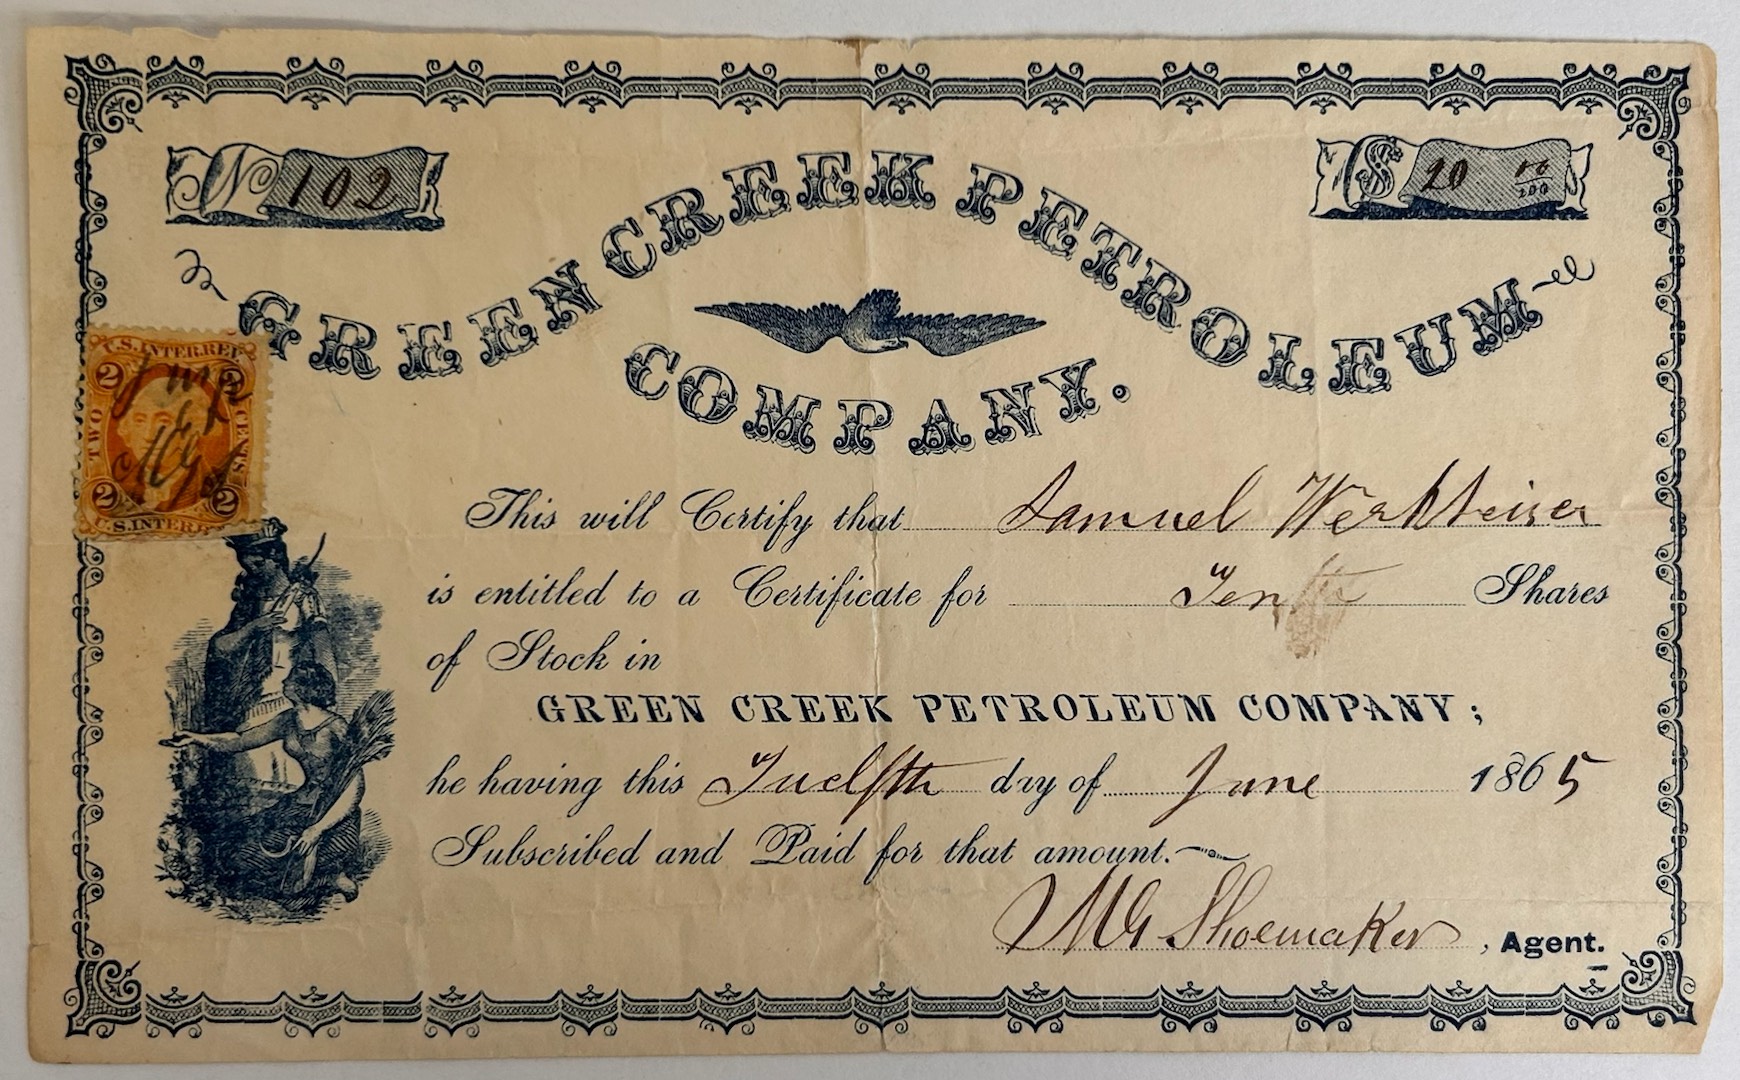 No 102
$ 20 00/100
GREEN CREEK PETROLEUM
COMPANY.
U.S. INTER. REV.
2 2
TWO CENTS
2 2
U.S. INTER. R
This will Certify that Samuel Werkheiser
is entitled to a Certificate for Ten Shares
of Stock in
GREEN CREEK PETROLEUM COMPANY;
he having this Twelfth day of June 1865
Subscribed and Paid for that amount.
M G Shoemaker, Agent.